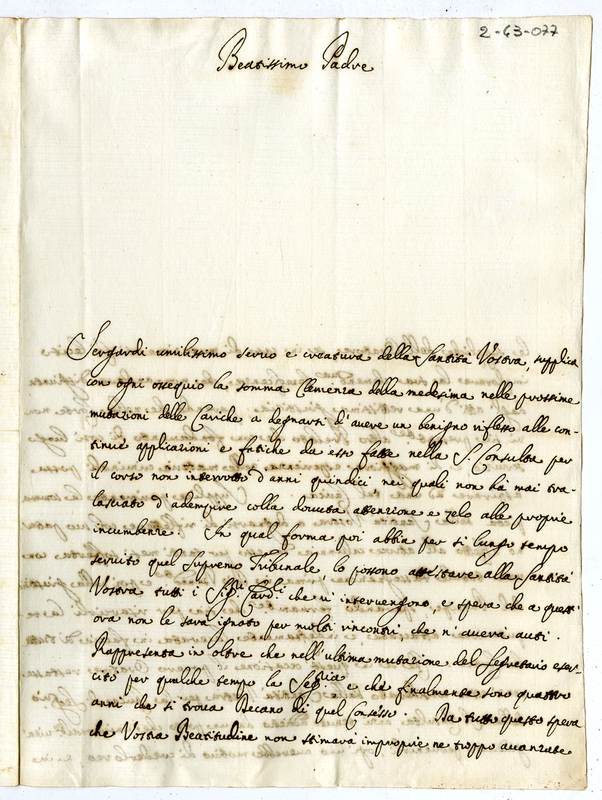 2-63-077
Beatissimo Padre
Sergardi umilissimo servo e creatura della Santità Vostra, supplica
con ogni ossequio la somma Clemenza della medesima nelle prossime
mutazioni delle Cariche a degnarsi d'avere un benigno riflesso alle con-
tinue applicazioni e fatiche da esso fatte nella S. Consulta per
il corso non interrotto d'anni quindici, nei quali non hà mai tra-
lasciato d'adempire colla dovuta attenzione e zelo alle proprie
incumbenze. In qual forma poi abbia per sì lungo tempo
servito quel Supremo Tribunale, lo possono attestare alla Santità
Vostra tutti i Sig.ri Card.li che v'intervengono, e spera che a quest'
ora non le sarà ignoto per molti rincontri, che n'averà avuti.
Rappresenta in oltre che nell'ultima mutazione del Segretario eser-
citò per qualche tempo la Seg.ria e che finalmente sono quattro
anni che si trova Decano di quel Consesso. Da tutto questo spera
che Vostra Beatitudine non stimarà improprie ne troppo avanzate